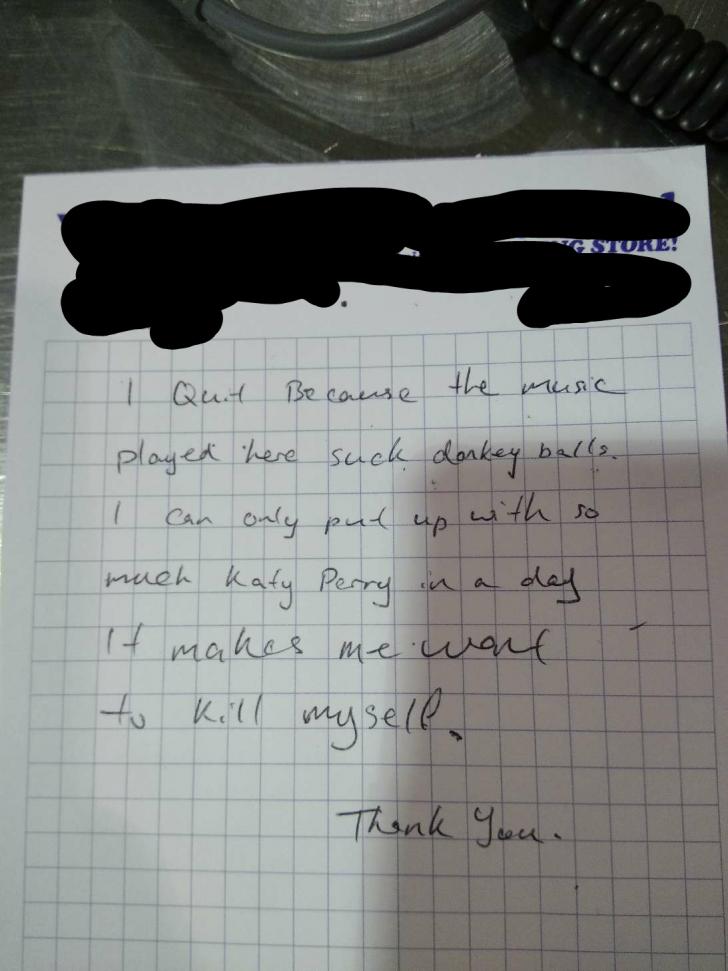 NG STORE!
I Quit Because the music
played here suck donkey balls.
I can only put up with so
much Katy Perry in a day
It makes me want
to kill myself.
Thank You.